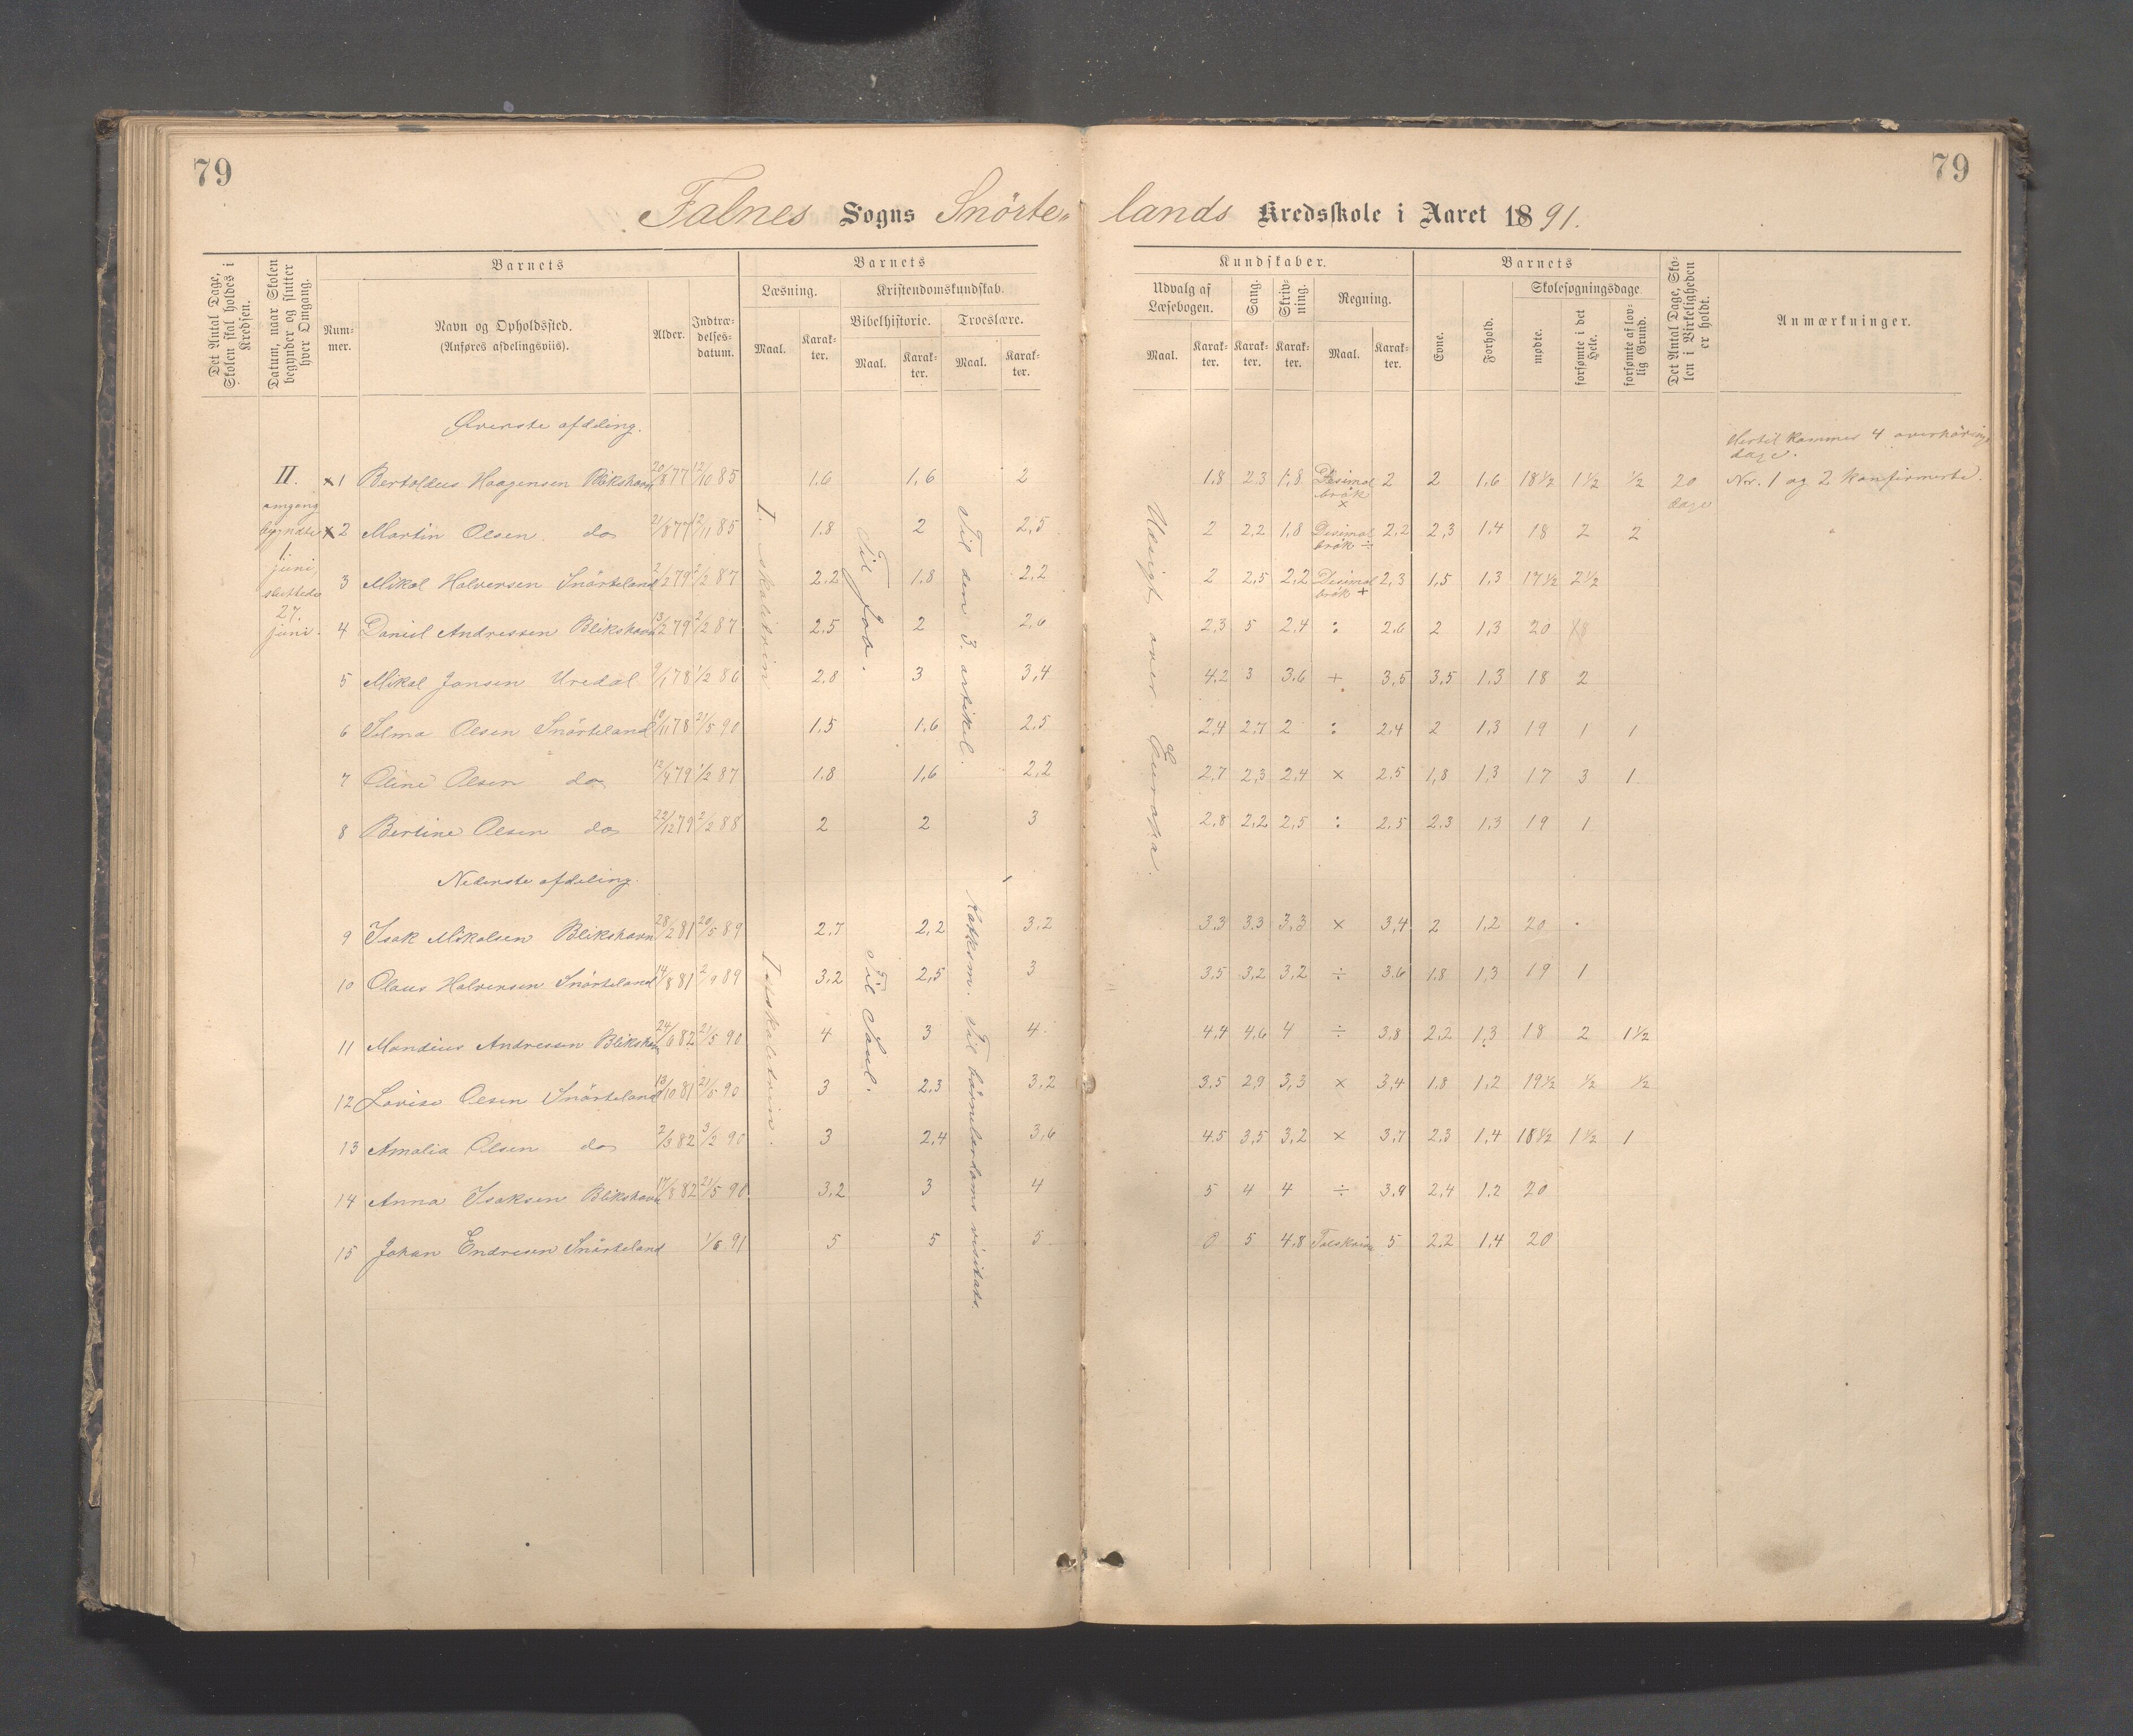 79
79
Falnes Sogns Snörte„ lands Kredsskole i Aaret 1891.
Det Antal Dage, Skolen skal holdes i Kredsen.
Datum, naar Skolen begynder og slutter hver Omgang.
Barnets
Nummer.
Navn og Opholdssted.
(Anføres afdelingsviis).
Alder.
Indtrædelsesdatum.
Barnets
Læsning.
Maal.
Karakter.
Kristendomskundskab.
Bibelhistorie.
Maal.
Karakter.
Troeslære.
Maal.
Karakter.
Kundskaber.
Udvalg af Læsebogen.
Maal.
Karakter.
Sang.
Karakter.
Skrivning.
Karakter.
Regning.
Maal.
Karakter.
Barnets
Evne.
Forhold.
Skolesøgningsdage
mødte.
forsømte i det Hele.
forsømte af lovlig Grund.
Det Antal Dage, Skolen i Virkeligheden er holdt.
Anmærkninger.
Øverste afdeling.
Hertil kommer 4 overhørings dage.
II. omgang begyndte 1. juni, sluttede 27. juni.
x1 Bertoldus Haagensen Blikshavn 20/8 77 12/10 85 1.6 1,6 2 1.8 2.3 1,8 Desimal brøk x 2 2 1,6 18½ 1½ ½ 20 dage Nr. 1 og 2 konfirmerte.
x2 Martin Olsen do 21/8 77 12/1 85 1.8 2 2,5 2 2,2 1,8 Desimal brøk ÷ 2,2 2,3 1,4 18 2 2
3 Mikal Halversen Snörteland 2/2 79 2/2 87 2,2 1.8 2,2 2 2,5 2,2 Desimal brøk + 2,3 1,5 1,3 17½ 2½
4 Daniel Andressen Blikshavn 13/2 79 2/2 87 2,5 2 2,6 2,3 5 2.4 : 2.6 2 1,3 20
5 Mikal Jansen Uredal 9/1 78 1/2 86 2.8 3 3,4 4,2 3 3.6 + 3,5 3,5 1,3 18 2
6 Selma Olsen Snörteland 10/1 78 21/5 90 1,5 1,6 2,5 2,4 2,7 2 : 2,4 2 1,3 19 1 1
7 Oline Olsen do 12/4 79 1/2 87 1.8 1,6 2,2 2,7 2,3 2,4 x 2.5 1,8 1,3 17 3 1
8 Bertine Olsen do 22/12 79 2/2 88 2 2 3 2,8 2,2 2,5 : 2.5 2.3 1,3 19 1
I. skaletrin
Til Job.
Til den 3. artikel.
Udsigt over Europa.
Nederste afdeling.
9 Isak Mikalsen Blikshavn 28/2 81 20/5 89 2,7 2,2 3,2 3.3 3.3 3,3 x 3,4 2 1,2 20
10 Olaus Halversen Snörteland 14/8 81 2/9 89 3,2 2,5 3 3,5 3,2 3,2 ÷ 3.6 1.8 1,3 19 1
11 Mandius Andresen Blikshavn 24/6 82 21/5 90 4 3 4 4,4 4,6 4 ÷ 3,8 2,2 1,3 18 2 1½
12 Lovise Olsen Snörteland 13/10 81 21/5 90 3 2.3 3,2 3.5 2,9 3,3 x 3,4 1.8 1,2 19½ ½ ½
13 Amalia Olsen do 2/3 82 3/2 90 3 2,4 3,6 4.5 3,5 3,2 x 3,7 2.3 1,4 18½ 1½ 1
14 Anna Isaksen Blikshavn 17/8 82 21/5 90 3,2 3 4 5 4 4 ÷ 3.9 2,4 1,2 20
15 Johan Endresen Snörteland 1/6 91 5 5 5 0 5 4,8 5 2,2 1,4 20
Til Saul.
Katksm. Til